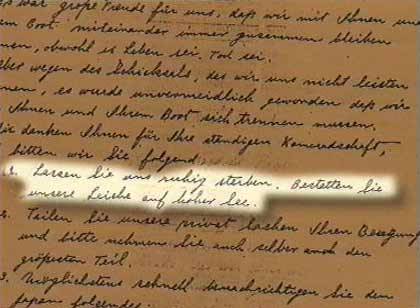 es war große Freude für uns, daß wir mit Ihnen und
Boot miteinander immer zusammen bleiben
nen, obwohl es Leben sei. Tod sei.
ber wegen des Schicksals, das wir uns nicht leisten
nen, es wurde unvermeidlich geworden daß wir
Ihnen und Ihrem Boot sich trennen mussen.
ir danken Ihnen für Ihre ständigen Kameradschaft,
bitten wir Sie folgend
1. Lassen Sie uns ruhig sterben. Bestatten Sie
unsere Leiche auf hoher See.
2. Teilen Sie unsere privat Sachen Ihren Besatzung
und bitte nehmen Sie auch selber auch den
größesten Teil.
3. Möglichstens schnell benachrichtigen Sie den
Japan folgendes